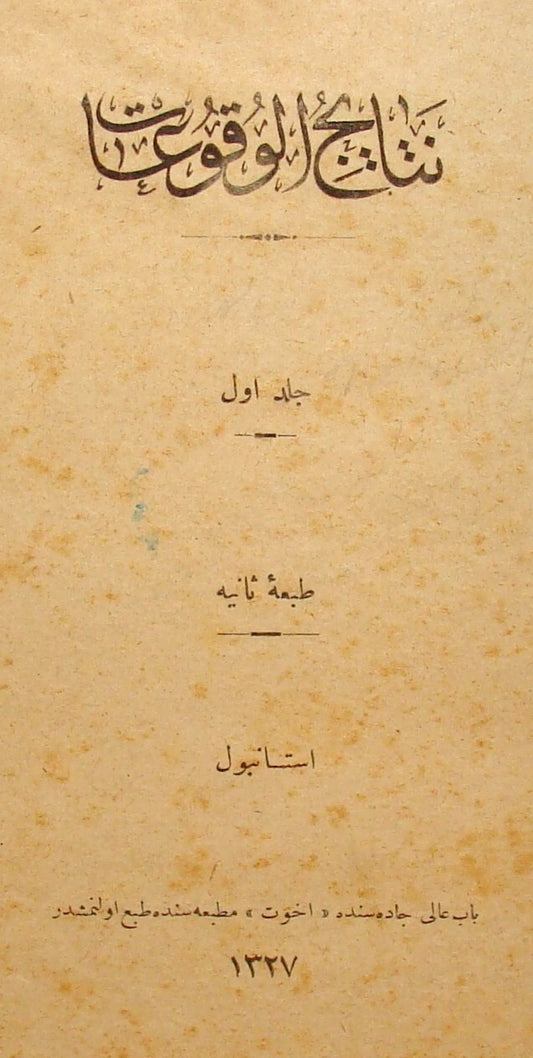 نتایج الوقوعات
جلد اول
طبعهٔ ثانیه
استانبول
باب عالی جاده‌سنده « اخوت » مطبعه‌سنده طبع اولنمشدر
١٣٢٧